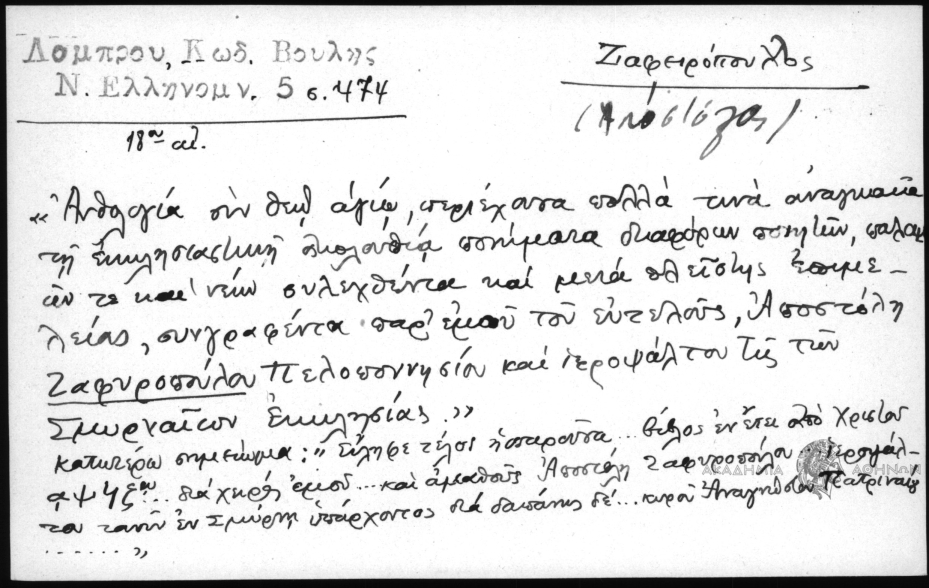 Λάμπρου, Κωδ. Βουλης
Ν. Ελληνομν. 5 σ. 474
18ου αἰ.
Ζαφειρόπουλλος
(Ἀπόστολος)
«Ἀνθολογία σὺν θεῷ ἁγίῳ, περιέχουσα πολλά τινά ἀναγκαῖα
τῇ ἐκκλησιαστικῇ ἀκολουθίᾳ ποιήματα διαφόρων ποιητῶν, παλαι
ῶν τε καὶ νέων συλεχθέντα καὶ μετὰ πλείστης ἐπιμε-
λείας, συνγραφέντα παρ' ἐμοῦ τοῦ εὐτελοῦς, Ἀποστόλη
Ζαφυροπούλου Πελοποννησίου καὶ ἱεροψάλτου τῆς τῶν
Σμυρναίων Ἐκκλησίας.»
κατωτέρω σημείωμα: "Εἴληφε τέλος ἡ παροῦσα... βίβλος ἐν ἔτει ἀπὸ Χριστοῦ
αψϟζ ... διὰ χειρὸς ἐμοῦ... καὶ ἀμαθοῦς Ἀποστόλη Ζαφυροπούλου... ἱεροψάλ-
του τανῦν ἐν Σμύρνῃ ὑπάρχοντος διὰ δαπάνης δὲ... κυροῦ Ἀναγνώστου
......."
ΑΚΑΔΗΜΙΑ ΑΘΗΝΩΝ